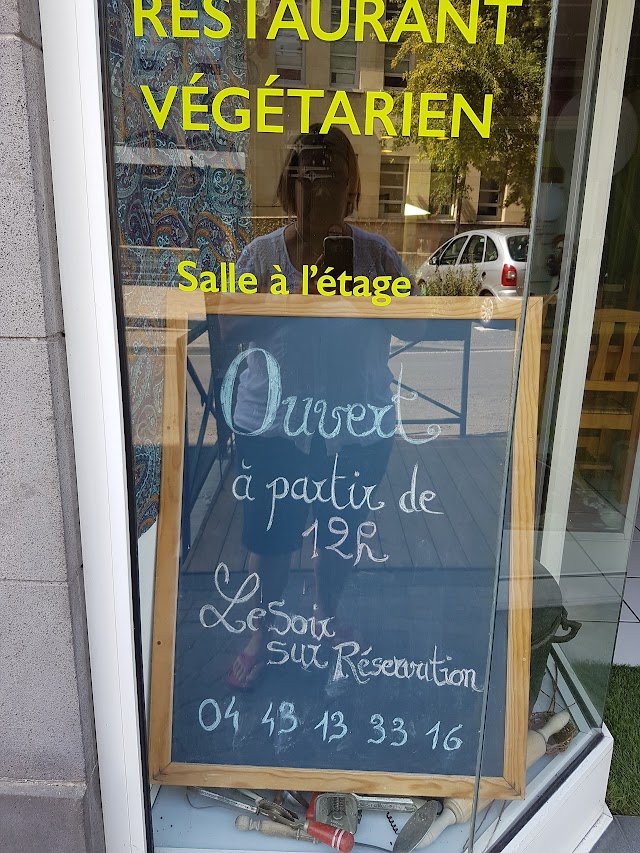 RESTAURANT
VÉGÉTARIEN
Salle à l'étage
Ouvert
à partir de
12h
Le Soir
sur Réservation
04 43 13 33 16